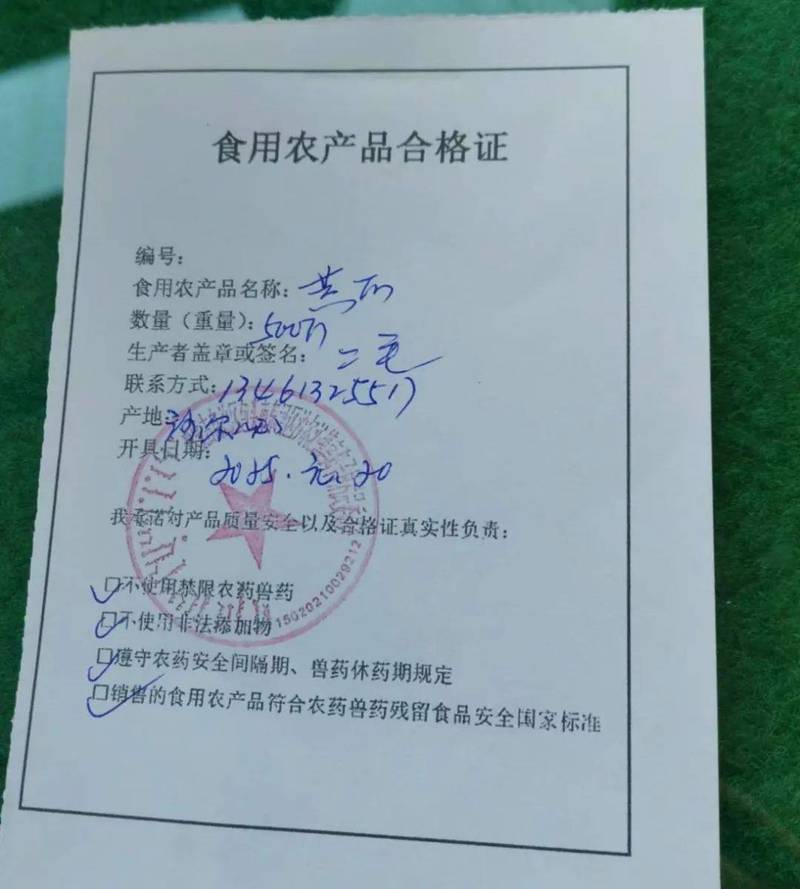 食用农产品合格证
编号:
食用农产品名称:
数量（重量）: 500斤
生产者盖章或签名: 二毛
联系方式: 13461325517
产地:
开具日期: 2025.元.20
我承诺对产品质量安全以及合格证真实性负责:
☑不使用禁限农药兽药
☑不使用非法添加物
☑遵守农药安全间隔期、兽药休药期规定
☑销售的食用农产品符合农药兽药残留食品安全国家标准
15020210029212